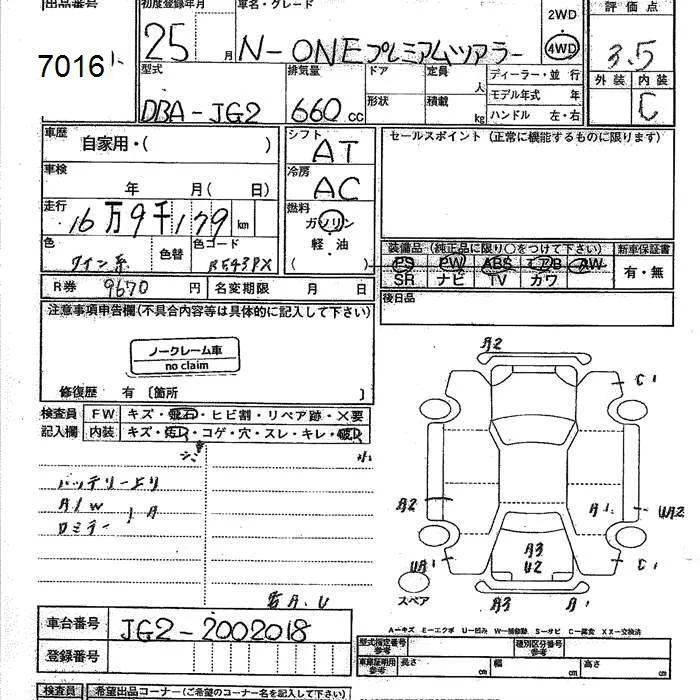 出品番号
7016
初度登録年月
25 月
車名・グレード
N-ONE プレミアムツアラー
2WD
4WD
評価点
3.5
外装 内装
C
型式
DBA-JG2
排気量
660 cc
ドア
形状
定員
人
積載
kg
ディーラー・並行
モデル年式 年
ハンドル 左・右
車歴
自家用・( )
シフト
AT
セールスポイント (正常に機能するものに限ります)
車検
年 月( 日)
冷房
AC
走行
16万9千179 km
燃料
ガソリン
軽・油
( )
色
ワイン系
色替
色コード
装備品 (純正品に限り○をつけて下さい)
新車保証書
PS PW ABS エアB AW
SR ナビ TV カワ
有・無
R券 9670 円
名変期限 月 日
後日品
注意事項申告欄(不具合内容等は具体的に記入して下さい)
ノークレーム車
no claim
修復歴 有 〔箇所 〕
検査員
記入欄
FW キズ・飛石・ヒビ割・リペア跡・×要
内装 キズ・汚れ・コゲ・穴・スレ・キレ・破れ
バッテリー上り
A/W
A2
C1
A2
A1
UA2
UA1
A3
U2
C1
A2
A1
スペア
A—キズ E—エクボ U—凹み W—補修跡 S—サビ C—腐食 XX—交換済
車台番号
JG2-2002018
登録番号
型式指定番号
参考
種別区分番号
参考
車庫証明用
参考
長さ cm
幅 cm
高さ cm
検査員
希望出品コーナー(ご希望のコーナー名を記入して下さい)